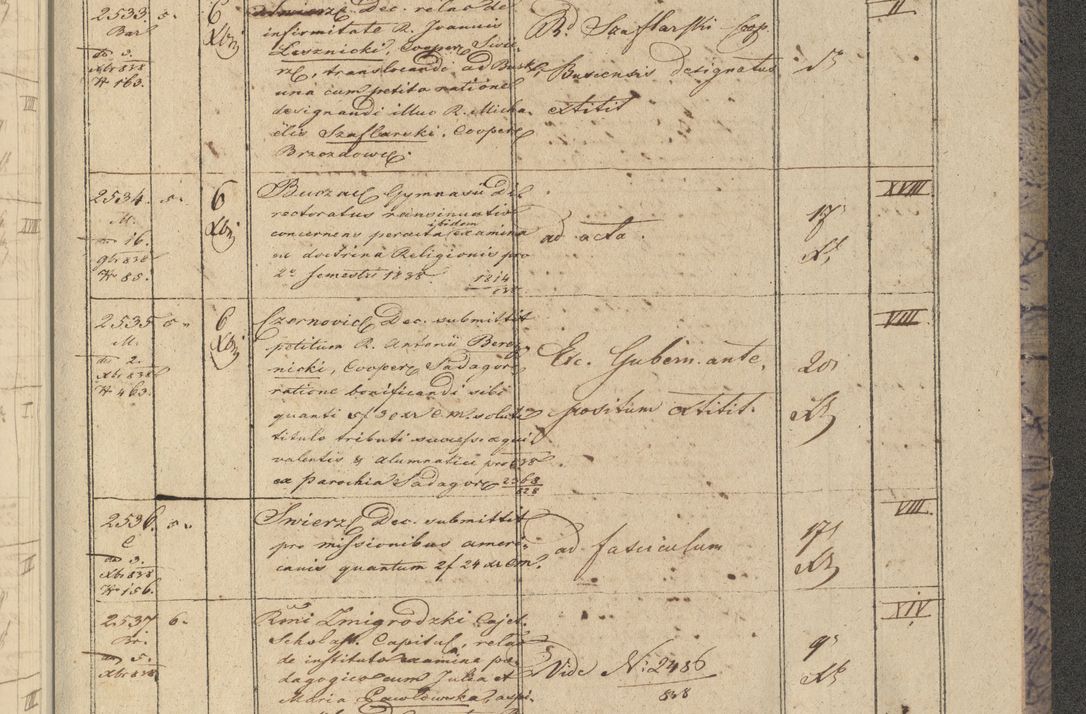 2533. 5.
Bar
dto 3.
Xbr 838
N 163.
6
Xbr
Swierz. Dec. relao de
infirmitate R. Joannis
Lesznicki, Cooper. Swie-
rz., translocandi ad Busk
una cum petita ratione
designandi illuc R. Micha-
elis Szaflarski. Cooper.
Brzozdowc.
Rd. Szaflarski Coop.
Buscensis designatus
extitit
5
II
2534. 5.
M.
dto 16.
9br 838
N 85.
6
Xbr
Buczac. Gymnasii Di-
rectoratus reinsinuatio
concernens peracta ibidem examina
ex doctrina Religionis pro
2o semestri 1838. 1814
838
ad acta.
17
Xb
XVIII
2535 5.
M.
dto 2.
Xbr 838
N 463.
6
Xbr
Czernovic. Dec. submittit
petitum R. Antonii Berez-
nicki, Cooper. Sadagor.
ratione bonificandi sibi
quanti 5f 30 xr C.M. soluti
titulo tributi
valentis & alumnatici pro 838
ex parochia Sadagor. 2368
828
Exc. Gubern. ante
positum extitit.
20
Xb
VIII
2536. 5.
C
dto 3.
Xbr 838
N 156.
Swierz. Dec. submittit
pro missionibus ameri-
canis quantum 2f 24 xr C.M.
ad fasciculum
17
Xb
VIII.
2537 6.
dto 5.
Xbr 838
Rmi Zmigrodzki Cajet.
Scholast. Capitul. relao
de instituto examine pæ-
dagogico cum Julia et
Maria Pawlowska, aspi-
Vide N: 2486
838
9
Xb
XIV